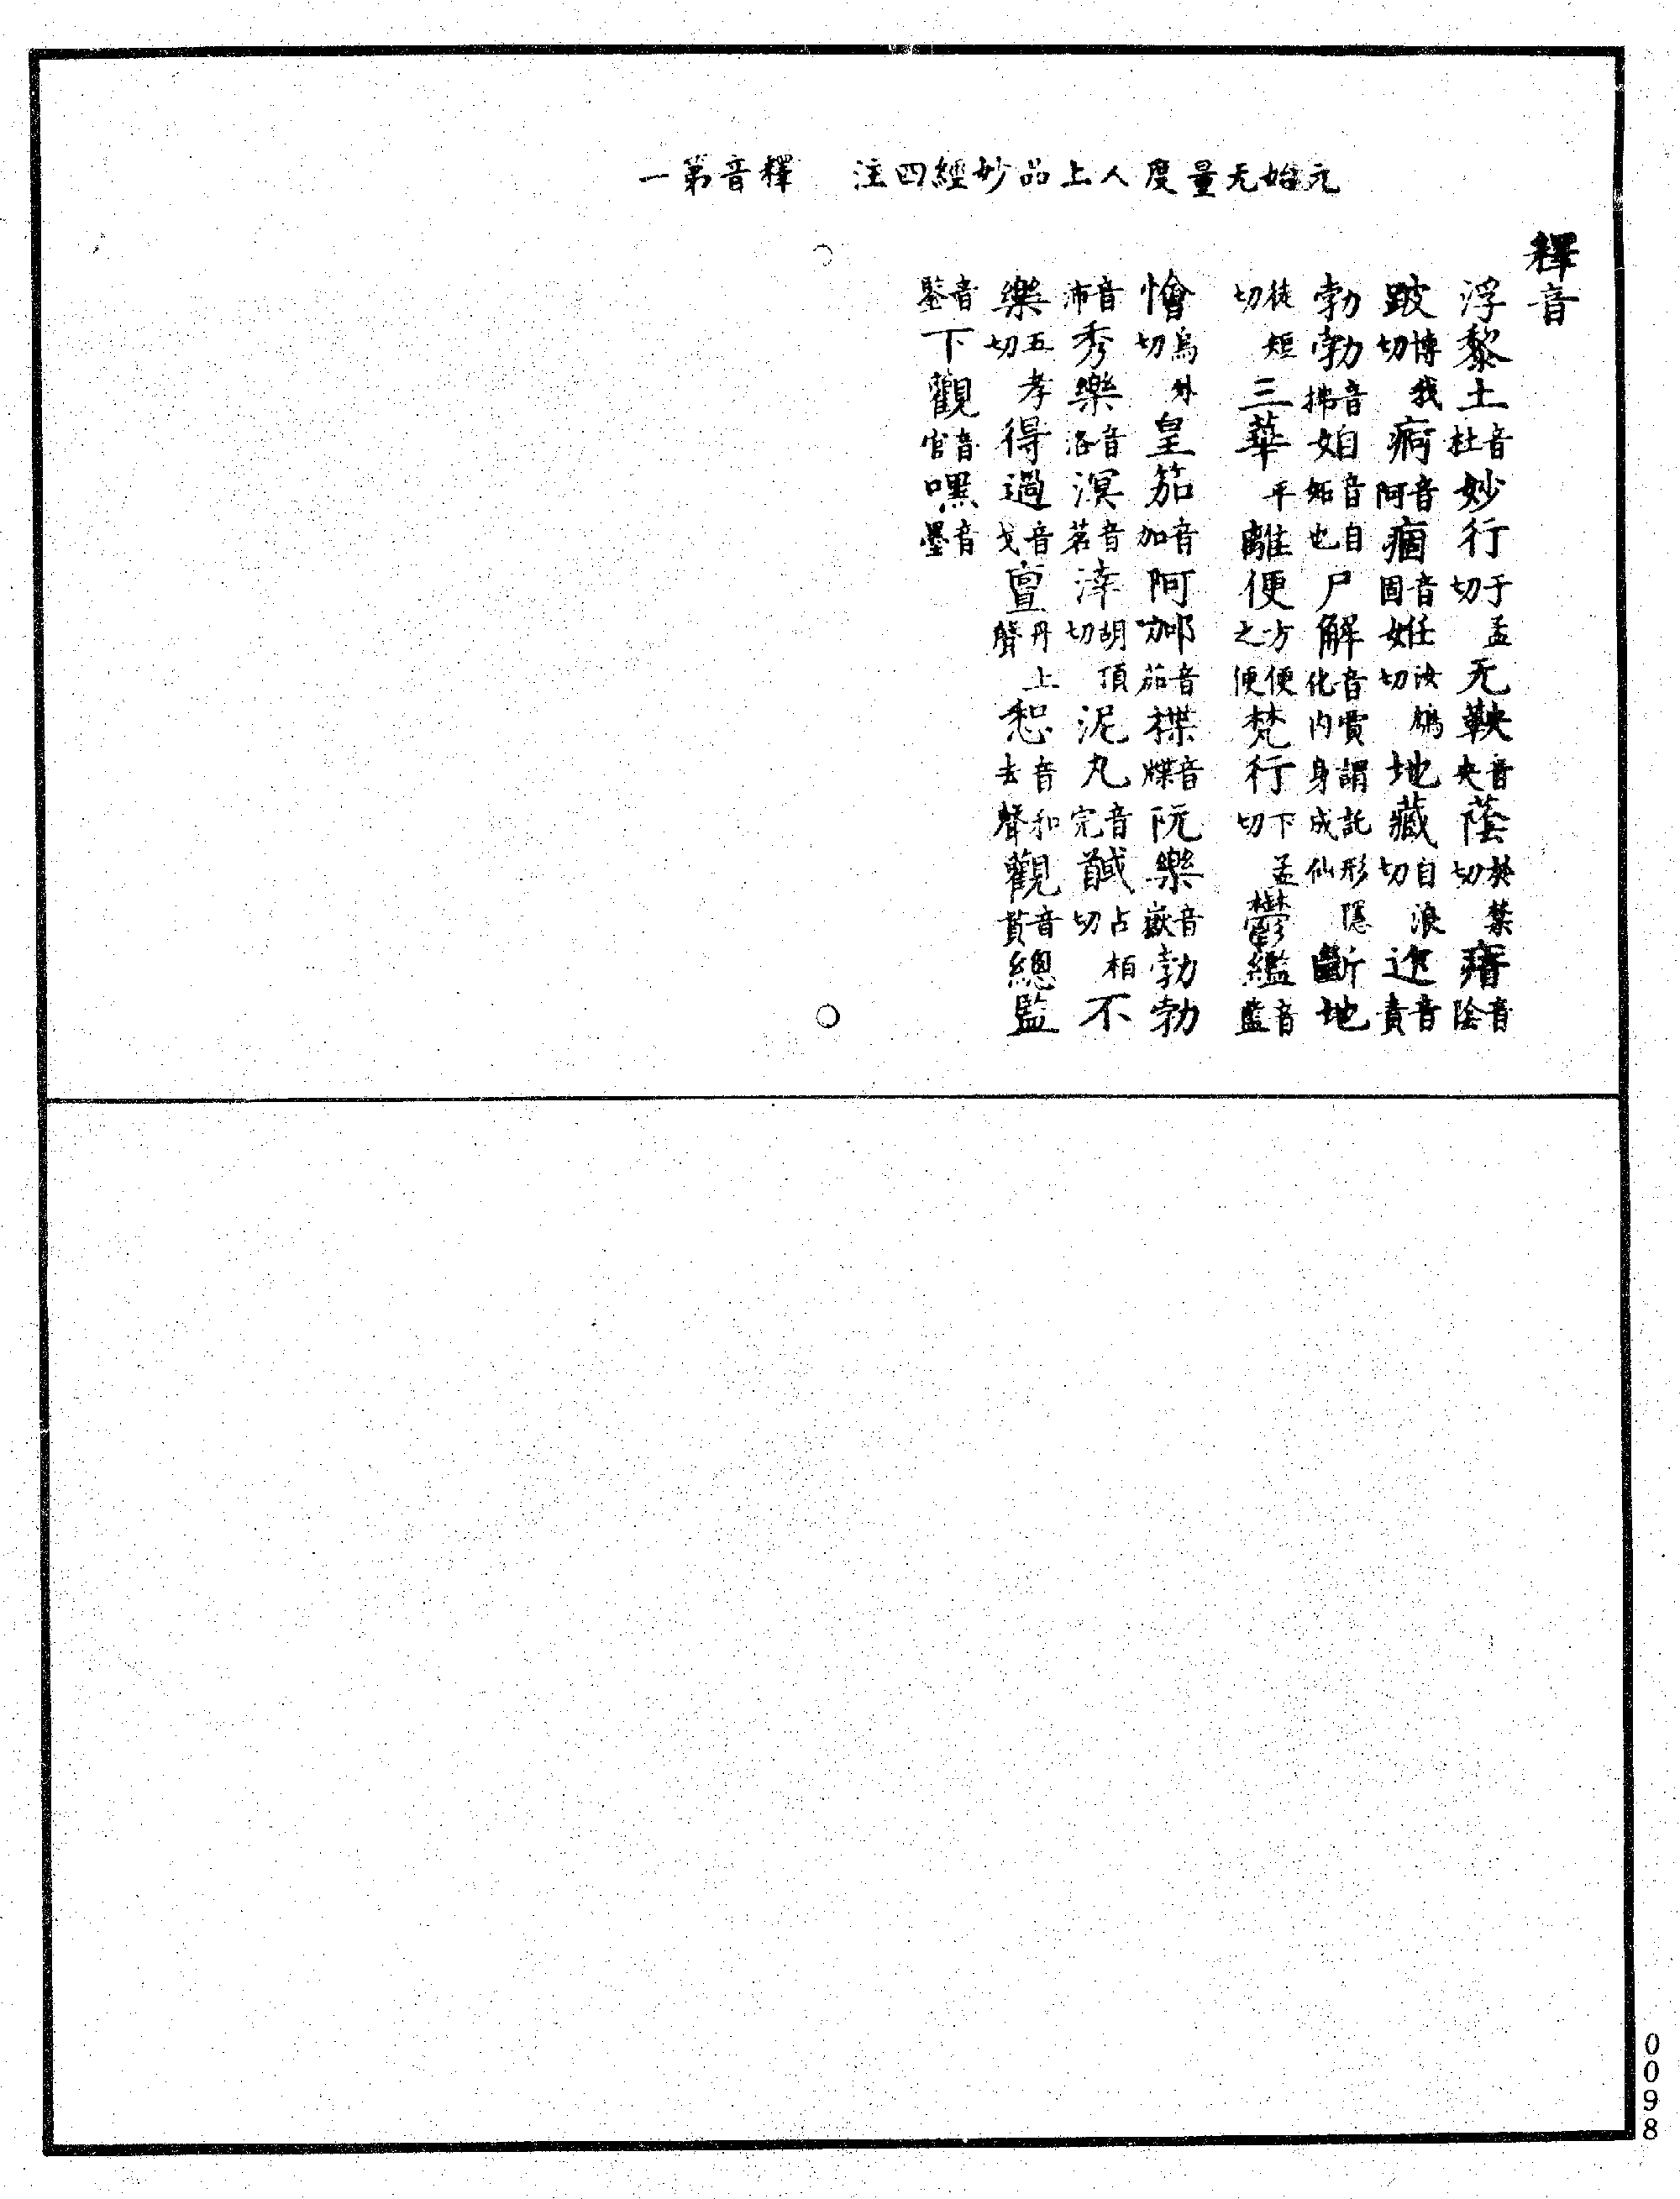 元始无量度人上品妙經四注　釋音第一
釋音
浮黎土音杜妙行于孟切无鞅音央蔭於禁切瘖音陰
跛博我切痾音阿痼音固妊汝鴆切地藏自浪切迮音責
勃勃音拂妬音妬自也尸解音賈謂託形隱化內身成仙斷地
徒短切三華平離便方便之便梵行下孟切鬱繿音藍
懀烏外切皇笳音加阿𠹌音茄楪音牒阮樂音嶽勃勃
音沛秀樂音洛溟音茗涬胡頂切泥丸音完馘占栢切不
樂五孝切得過音戈亶丹上聲惒音和去聲觀音貫總監
音鑒下觀音官嘿音墨
0098